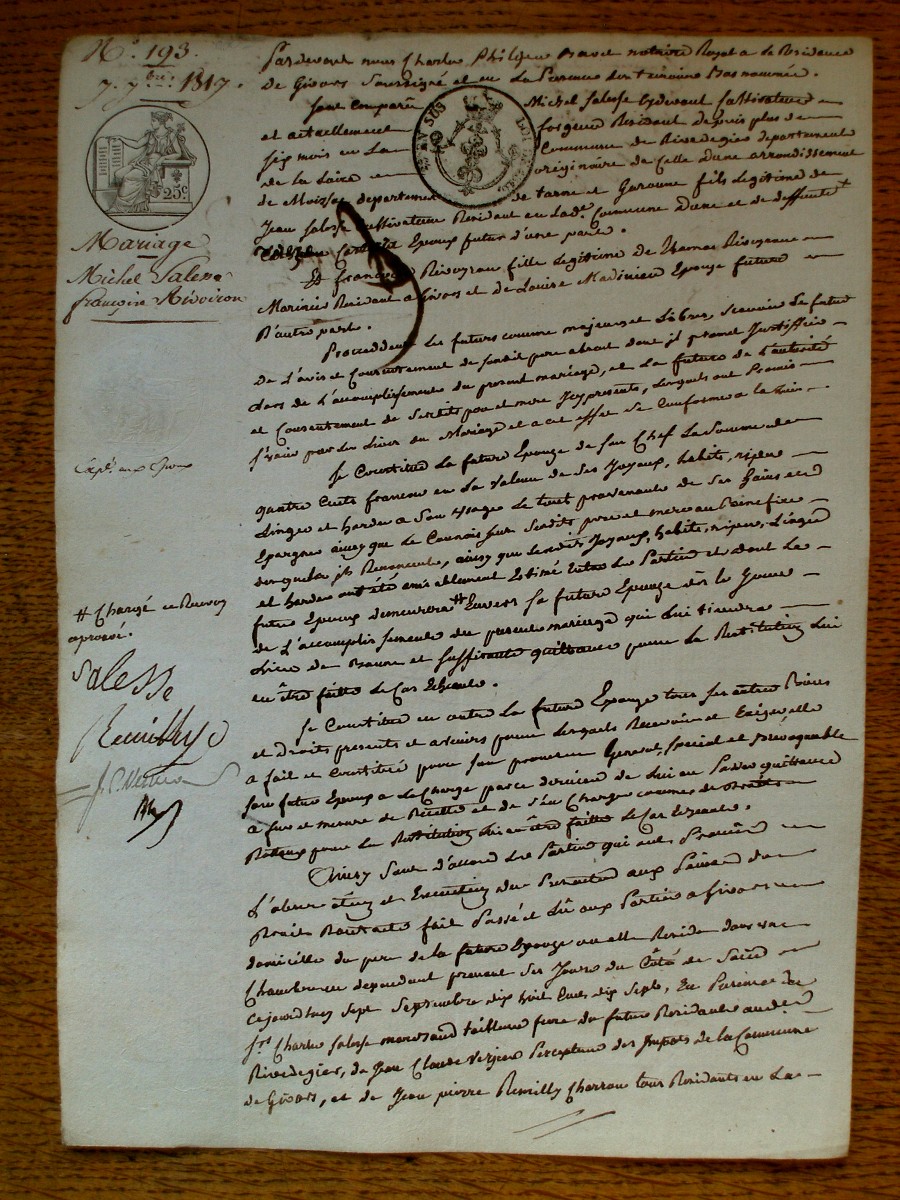 N.° 193.
7. 7.bre 1817.
25.c
Mariage
Michel Salesse
françoise Rivoiron
# Chargé ce Renvoy
aprouvé.
Salesse
Remilly
Pardevant nous Charles Philippe notaire Royal a la Residence
de Givors Soussigné et en La Presence des temoins Bas nommés.
Sont Comparus Michel Salesse cydevant Cultivateur
et actuellement forgeur Residant depuis plus de
six mois en La Commune de Rivedegier departement
de la Loire originaire de Celle d'une arrondissement
de Moissac departement de tarne et Garonne fils Legitime de
Jean Salesse Cultivateur Residant en Lad. Commune Dune et de deffunte
Epoux futur d'une part.
Et françoise Rivoyron fille Legitime de Thomas Rivoyron
Marinier Residant a Givors et de Louise Madinier Epouze future
D'autre part.
Proceddent Les futurs comme majeurs et Libres, scavoir Le futur
de L'avis et Consentement de son père absent dont il promet Justiffier
Lors de L'accomplissement du present mariage, et La future de L'autorité
et Consentement de sesdits pere et mere Icy presents, Lesquels ont Promis
se Constitue La future Epouze de Son Chef La Somme de
quatre Cents francs en La Valeur de Ses Joyaux, habits, nipes
Linges et hardes a Son Usage Le tout provenant de Ses Gains et
Epargnes ainsy que Le Connoissent Sesdits pere et mere au Benefice
duquel ils Renoncent, ainsy que Lesdits Joyaux, habits, nipes, Linges
et hardes ont été amiablement Estimé Entre Les Parties et dont Le
futur Epoux demeurera # Envers Sa future Epouze dès Le Jour
de L'accomplissement du present mariage qui Lui tiendra
Lieu de Bonne et suffisante quittance pour La Restitution Lui
en être faitte Le Cas Echeant.
Se Constitue en outre La future Epouze tous ses autres Biens
et Droits presents et avenirs pour Lesquels Recevoir et Exiger, elle
a fait et Constitué pour Son procureur General, Special et Irrevocable
Son futur Epoux a La Charge par ce dernier de Lui en Passer quittance
a fur et mesure de Recette et de s'en Charger comme de
pour La Restitution Lui en être faitte Le Cas Echeant.
Ainsy Sont d'accord Les Parties qui ont Promis
L'observation et Execution des Presentes aux Peines de
Droit. Dont acte fait Passé et Lû aux Parties a Givors
domicille du pere de la future Epouze ou elle Reside dans une
Chambre en dependant prenant Ses Jours du Coté de
cejourdhuy sept Septembre dix huit Cents dix Sept, En Presence de
Charles Salesse marchand tailleur frere du futur Residant aud.
Rivedegier, de Jean Claude Verjeu Percepteur des Impots de la Commune
de Givors, et de Jean pierre Remilly Charron tous Residants en La